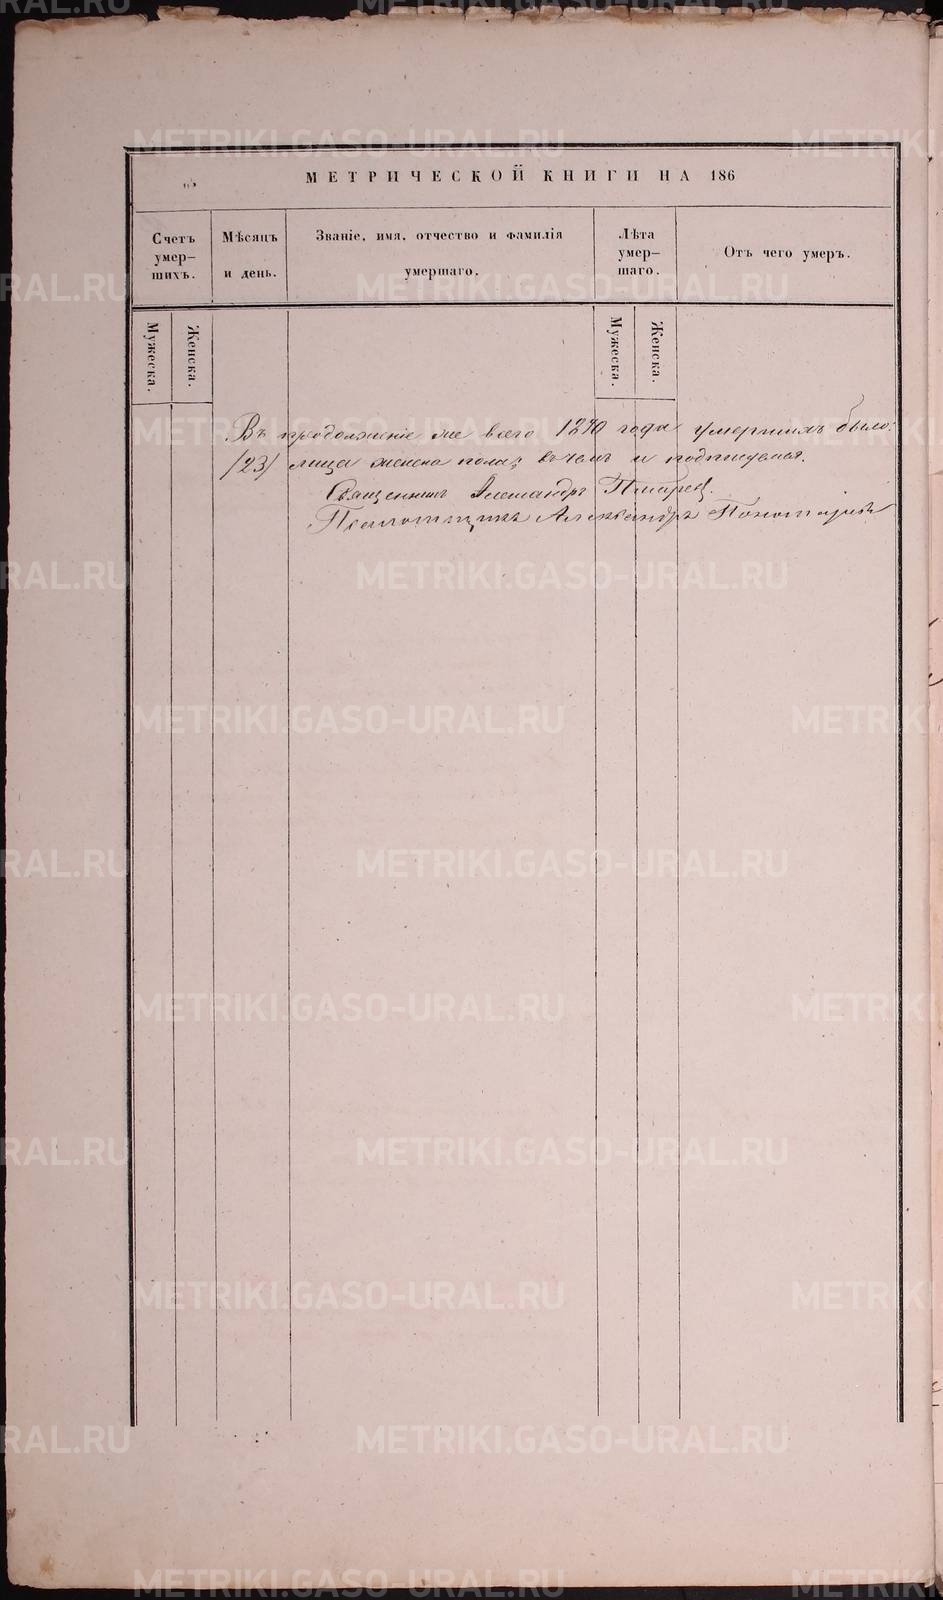 МЕТРИЧЕСКОЙ КНИГИ НА 186
Счетъ умер-шихъ.
Мѣсяцъ и день.
Званіе, имя, отчество и фамилія умершаго.
Лѣта умер-шаго.
Отъ чего умеръ.
Мужеска.
Женска.
Мужеска.
Женска.
Въ продолженіе же всего 1870 года умершихъ было:
/23/ лица женска пола; въ чемъ и подписуемся.
Священникъ Александръ
Александръ
METRIKI.GASO-URAL.RU